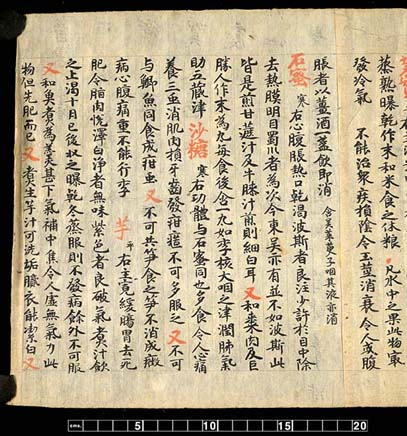 蒸熟曝乾作末和米食之休粮 凡水中之果此物最
發冷氣 不能治衆疾損陰令玉莖消衰令人或腹
脹者以薑酒一盞飲即消 含吳茱萸子咽其液亦消
石蜜 寒 右心腹脹熱口乾渴波斯者良注少許於目中除
去熱膜明目蜀川者為次今東吳亦有並不如波斯此
皆是煎甘蔗汁及牛膝汁煎則細白耳 又和棗肉及巨
勝人作末為丸每食後含一丸如李核大咽之津潤肺氣
助五藏津 沙糖 寒 右功體与石蜜同也多食令人心痛
養三虫消肌肉損牙齒發疳䘌不可多服之 又不可
与鯽魚同食成疳虫 又不可共笋食之笋不消成癥
病心腹痛重不能行李 芋 平 右主寬緩腸胃去死
肥令脂肉悅澤白淨者無味紫色者良破氣煮汁飲
之止渴十月已後收之曝乾冬蒸服則不發病餘外不可服
又和臭煮為羹甚下氣補中焦令人虛無氣力此
物但先肥而已 又煮生芋汁可洗垢膩衣能潔白 又
cms. 5 10 15 20